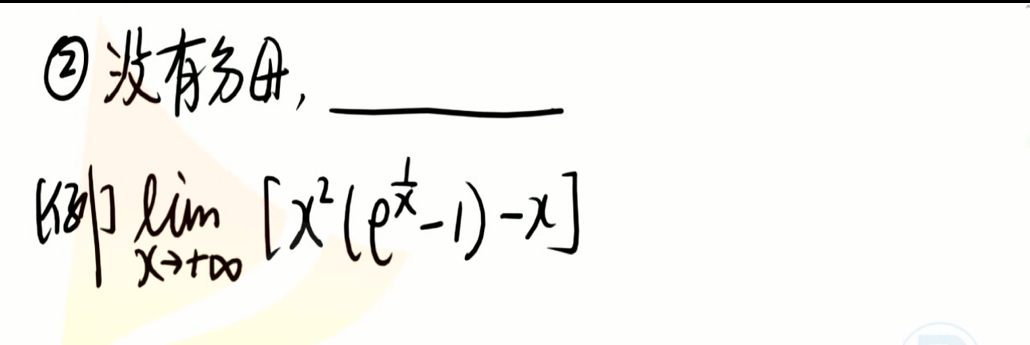 ② 没有分母, ________
[例] lim [x²(e^(1/x)-1)-x]
x→+∞